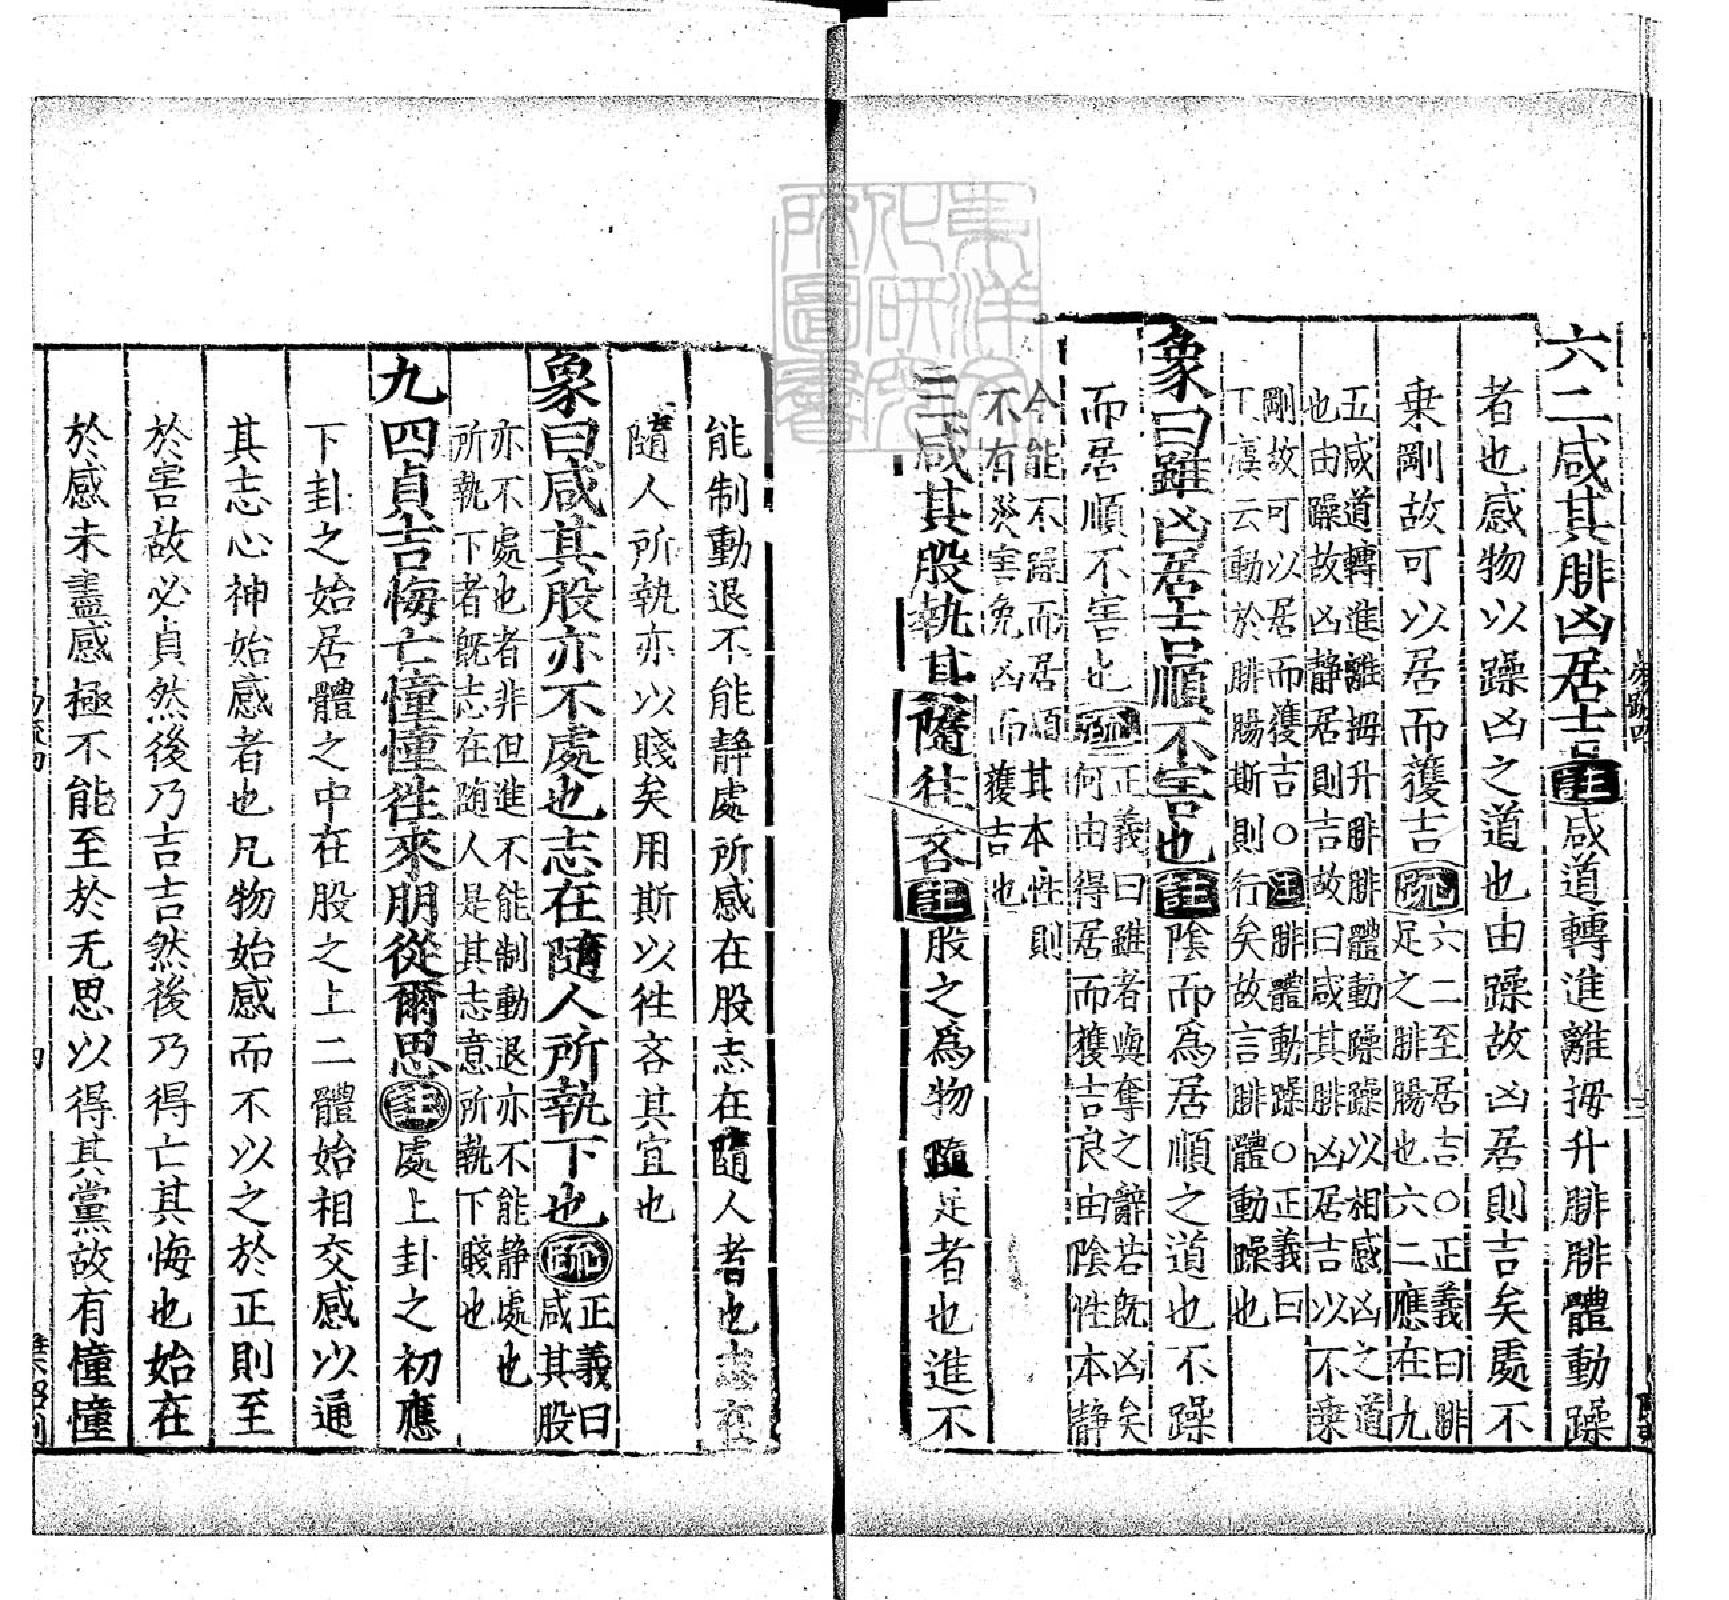 六二咸其腓凶居吉註咸道轉進離拇升腓腓體動躁
者也感物以躁凶之道也由躁故凶居則吉矣處不
乗剛故可以居而獲吉疏六二至居吉○正義曰腓
足之腓腸也六二應在九
五咸道轉進離拇升腓腓體動躁躁以相感凶之道
也由躁故凶静居則吉故曰咸其腓凶居吉以不乗
剛故可以居而獲吉○註腓體動躁○正義曰
王廙云動於腓腸斯則行矣故言腓體動躁也
象曰雖凶居吉順不害也註陰而為居順之道也不躁
而居順不害也疏正義曰雖者與奪之辭若旣凶矣
何由得居而獲吉良由陰性本静
今能不躁而居順其本性則
不有災害免凶而獲吉也
三咸其股執其隨往吝註股之為物隨足者也進不
能制動退不能静處所感在股志在隨人者也志在
隨人所執亦以賤矣用斯以徃吝其宜也
象曰咸其股亦不處也志在隨人所執下也疏正義曰
咸其股
亦不處也者非但進不能制動退亦不能静處也
所執下者旣志在随人是其志意所執下賤也
九四貞吉悔亡憧憧徃來朋從爾思註處上卦之初應
下卦之始居體之中在股之上二體始相交感以通
其志心神始感者也凡物始感而不以之於正則至
於害故必貞然後乃吉吉然後乃得亡其悔也始在
於感未盡感極不能至於无思以得其黨故有憧憧